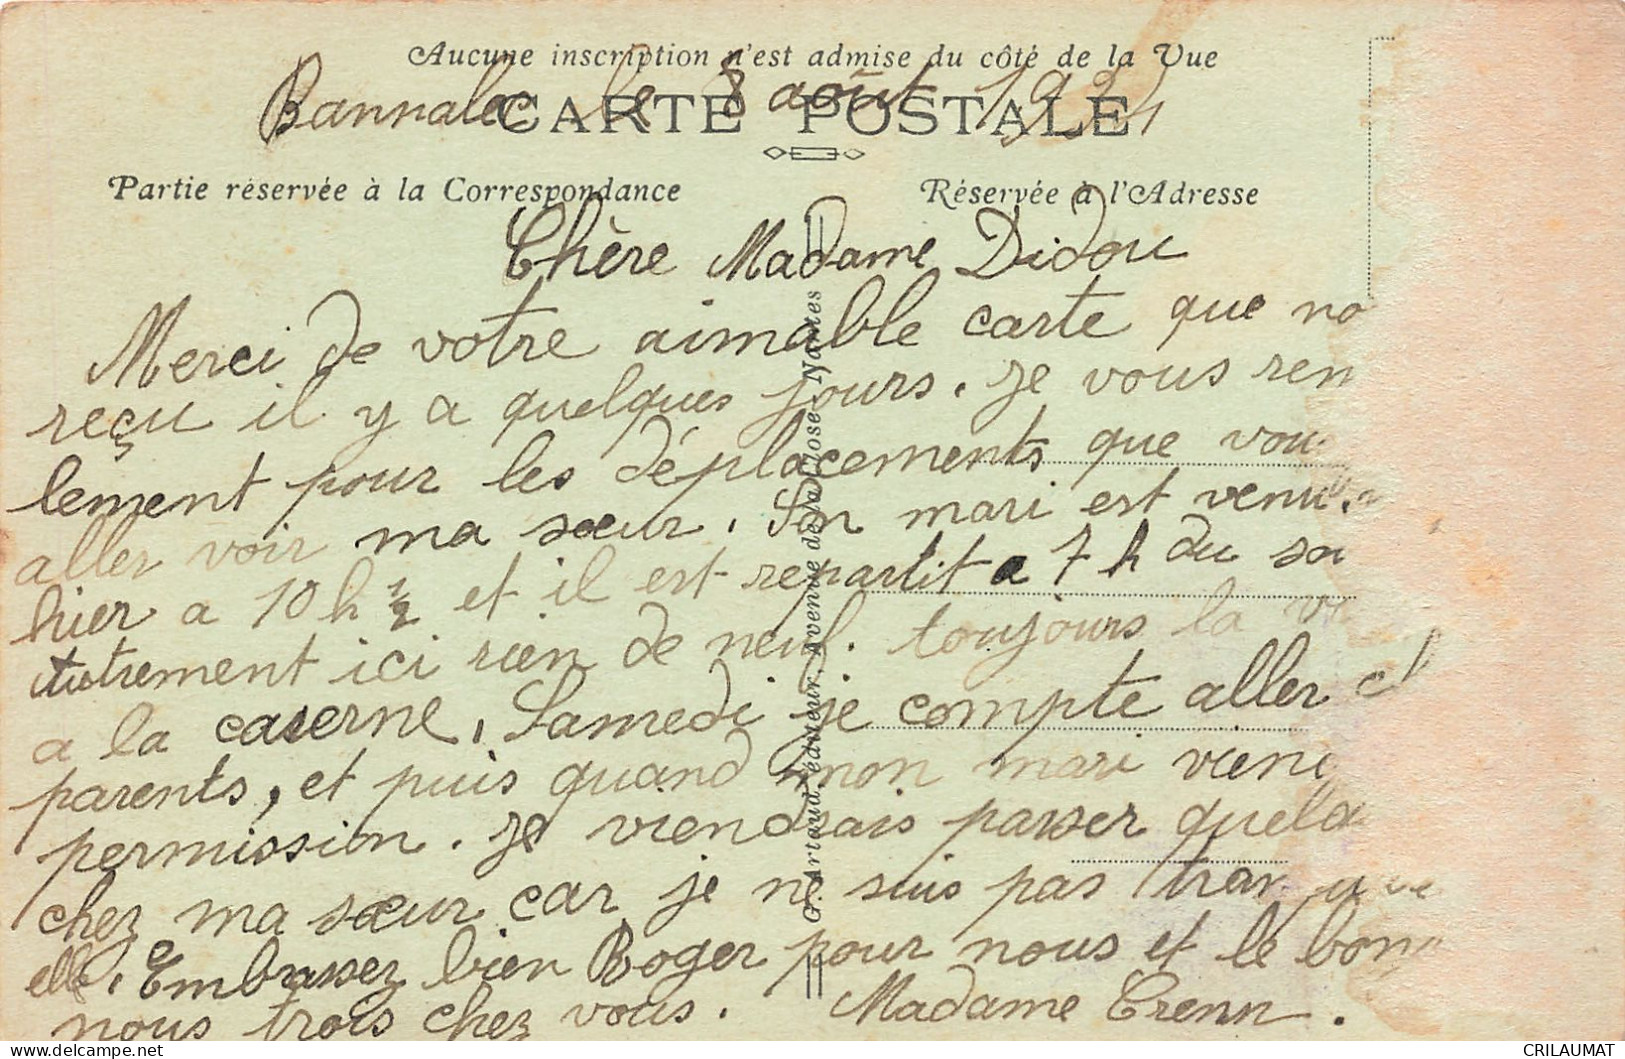 Aucune inscription n'est admise du côté de la Vue
Bannalec le 8 août 1924
CARTE POSTALE
Partie réservée à la Correspondance
Réservée à l'Adresse
Chère Madame Didou
Merci de votre aimable carte que no
reçu il y a quelques jours. Je vous rem
lement pour les déplacements que vou
aller voir ma sœur. Son mari est venu.
hier a 10 h ½ et il est repartit a 7 h du so
Autrement ici rien de neuf. toujours la vi
a la caserne. Samedi je compte aller ch
parents, et puis quand mon mari vieng
permission. Je viendrais passer quelq
chez ma sœur car je ne suis pas
elle. Embrassez bien Roger pour nous et le bon
nous trois chez vous. Madame Crenn.
G. Artaud, éditeur, Avenue de Nantes
CRILAUMAT